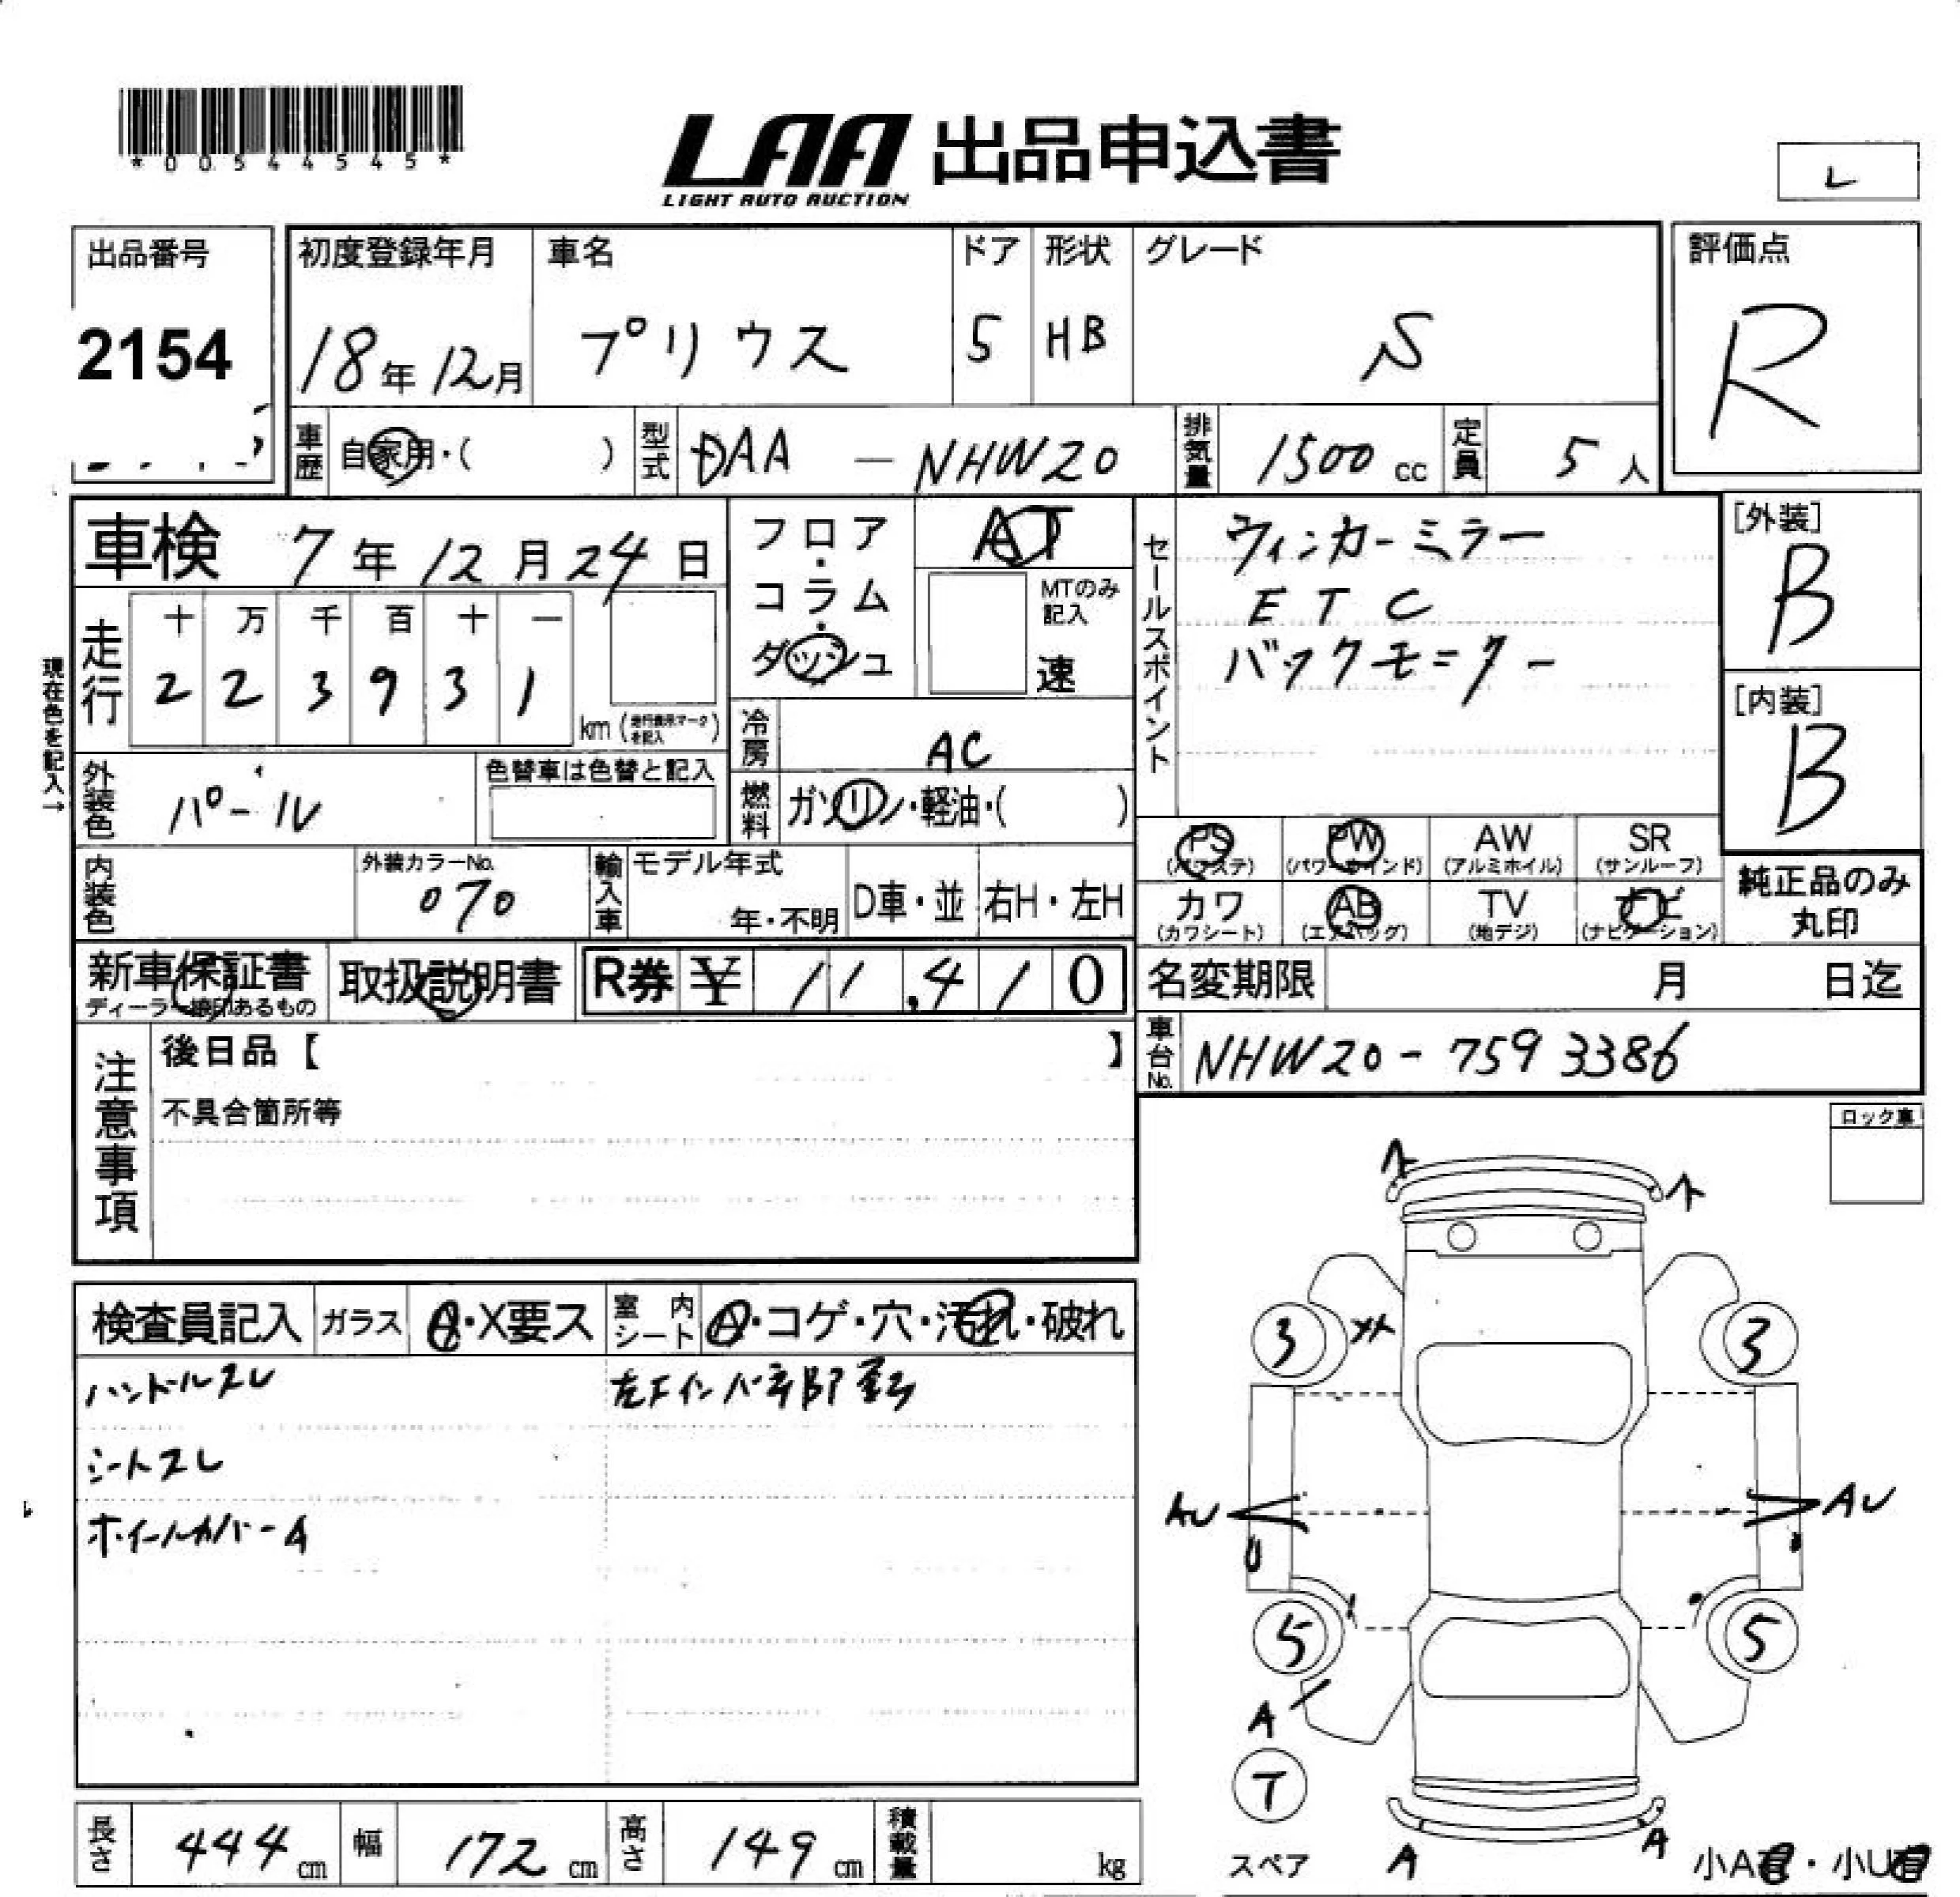 *00544545*
LAA 出品申込書
LIGHT AUTO AUCTION
レ
出品番号
2154
初度登録年月
18年12月
車名
プリウス
ドア
5
形状
HB
グレード
S
評価点
R
車歴 自家用・( )
型式 DAA - NHW20
排気量 1500 cc
定員 5 人
車検 7年12月24日
走行
十 万 千 百 十 一
2 2 3 9 3 1
km (走行表示マークを記入)
現在色を記入→
フロア・コラム・ダッシュ
AT
MTのみ記入
速
セールスポイント
ウィンカーミラー
ETC
バックモニター
[外装]
B
[内装]
B
外装色 パール
色替車は色替と記入
冷房 AC
燃料 ガソリン・軽油・( )
内装色
外装カラーNo.
070
輸入車
モデル年式
年・不明
D車・並
右H・左H
PS (パワステ)
PW (パワーウインド)
AW (アルミホイル)
SR (サンルーフ)
カワ (カワシート)
AB (エアバッグ)
TV (地デジ)
ナビ (ナビゲーション)
純正品のみ
丸印
新車保証書
取扱説明書
R券 ¥ 11,410
名変期限 月 日迄
車台No. NHW20-7593386
注意事項
後日品【 】
不具合箇所等
ロック車
検査員記入
ガラス A・X要ス
室内シート A・コゲ・穴・汚れ・破れ
ハンドルスレ
シートスレ
ホイールカバーA
3
3
AU
AU
U
5
5
A
T
スペア
A
A
小A・小U
長さ 444 cm
幅 172 cm
高さ 149 cm
積載量 kg